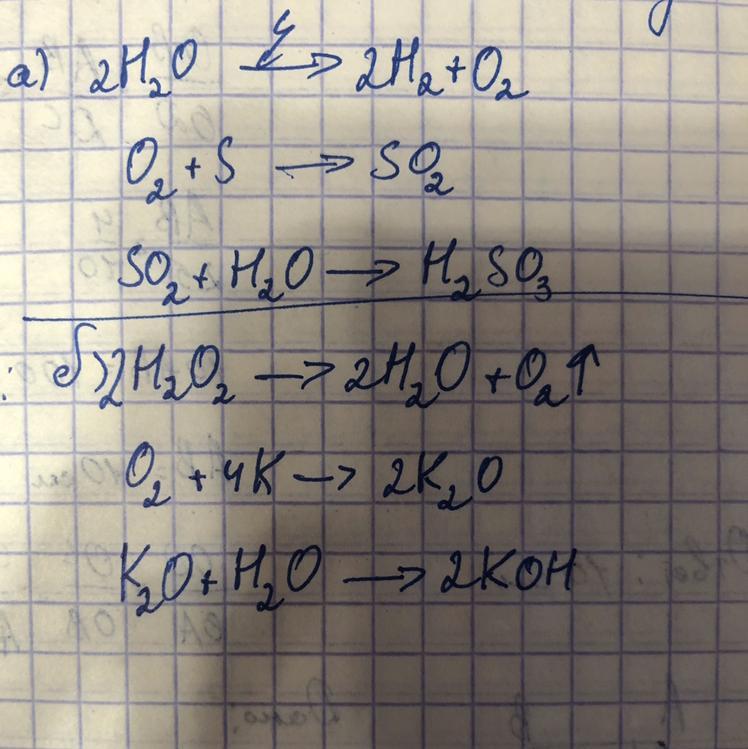 а) 2H₂O → 2H₂ + O₂
O₂ + S → SO₂
SO₂ + H₂O → H₂SO₃
б) 2H₂O₂ → 2H₂O + O₂↑
O₂ + 4K → 2K₂O
K₂O + H₂O → 2KOH